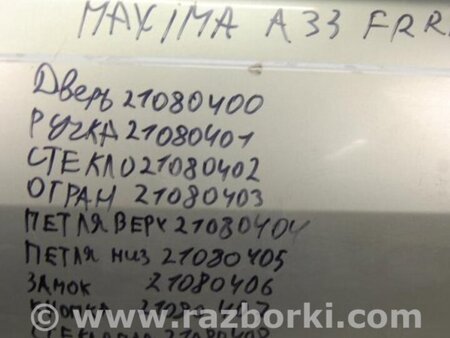 MAXIMA A33 FRR
Дверь 21080400
РУЧКА 21080401
СТЕКЛО 21080402
ОГРАН 21080403
ПЕТЛЯ ВЕРХ 21080404
ПЕТЛЯ НИЗ 21080405
ЗАМОК 21080406
КНОПКА 21080407
© www.razborki.com